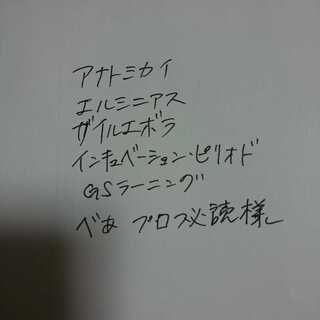 アナトミカイ
エルシニアス
ザイルエボラ
インキュベーション・ピリオド
GSラーニング
べあ プロフ必読様